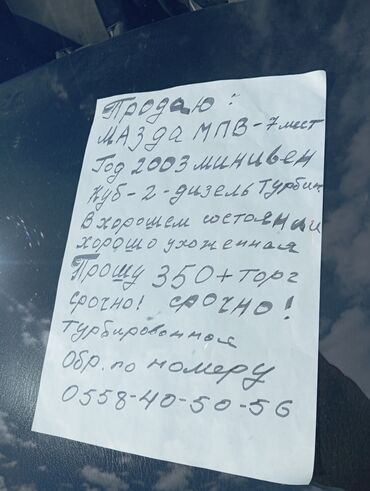 Продаю:
МАЗда МПВ-7 мест
Год 2003 минивен
Куб-2-дизель турбин
В хорошем состоянии
хорошо ухоженная
Прошу 350+торг
срочно! срочно!
турбированная
Обр. по номеру
0558-40-50-56